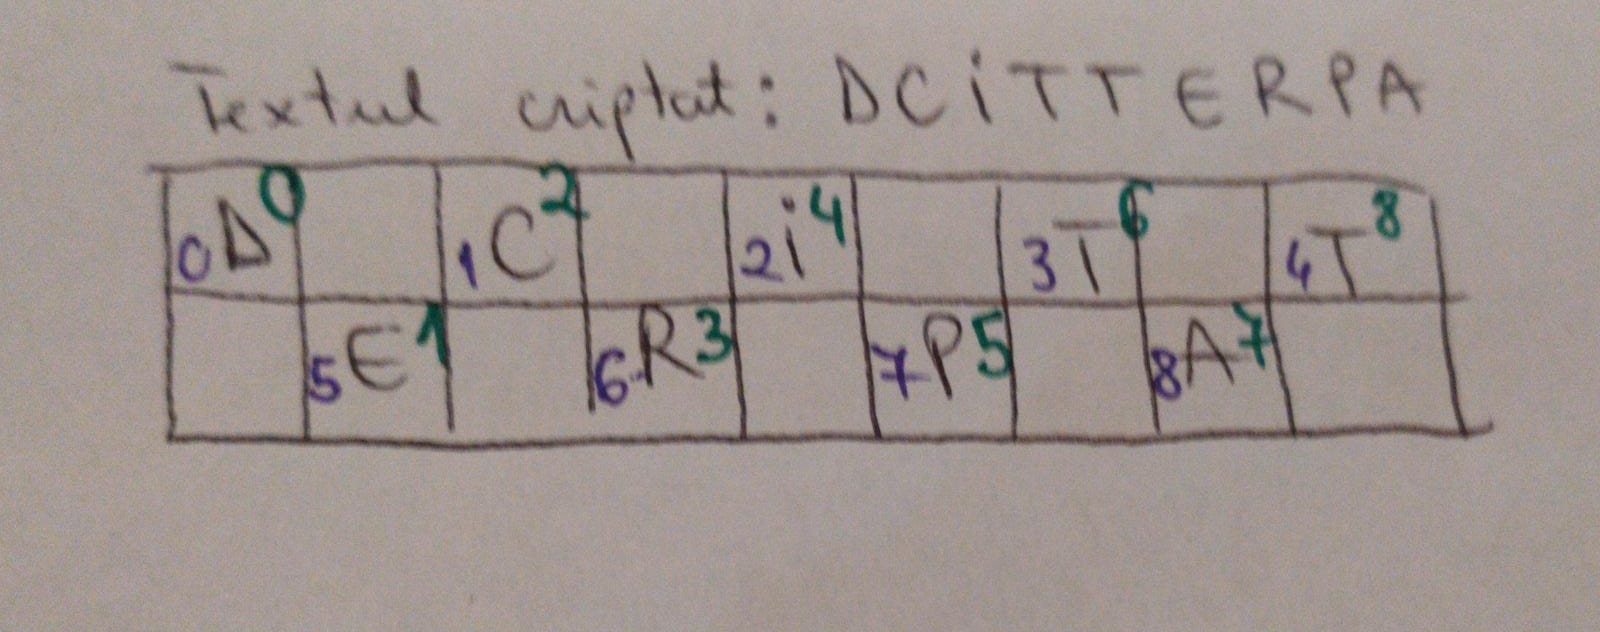 Textul criptat: DCiTTERPA
0 D 0 1 C 2 2 i 4 3 T 6 4 T 8
5 E 1 6 R 3 7 P 5 8 A 7